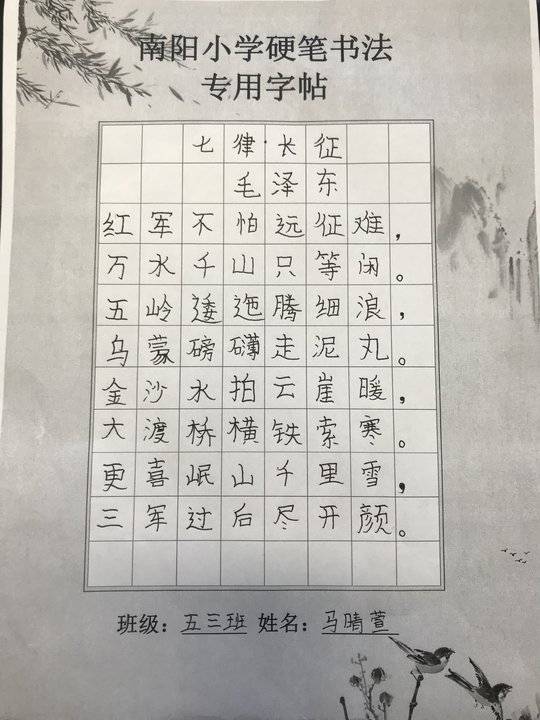 南阳小学硬笔书法
专用字帖
七律·长征
毛泽东
红军不怕远征难，
万水千山只等闲。
五岭逶迤腾细浪，
乌蒙磅礴走泥丸。
金沙水拍云崖暖，
大渡桥横铁索寒。
更喜岷山千里雪，
三军过后尽开颜。
班级：五三班 姓名：马晴萱